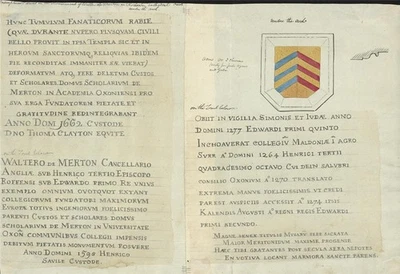 HUNC TUMULUM FANATICORUM RABIE
(QUÆ DURANTE NUPERO PLUSQUAM CIVILI
BELLO PROUT IN IPSA TEMPLA SIC ET IN
HEROUM SANCTORUMQ RELIQUIAS IBIDEM
PIE RECONDITAS IMMANITER SÆVIERAT)
DEFORMATUM ATQ FERE DELETUM CUSTOS
ET SCHOLARES DOMUS SCHOLARIUM DE
MERTON IN ACADEMIA OXONIENSI PRO
SUA ERGA FUNDATOREM PIETATE ET
GRATITUDINE REDINTEGRABANT
ANNO DOM 1662 CUSTODE
DNO THOMA CLAYTON EQUITE
WALTERO DE MERTON CANCELLARIO
ANGLIÆ SUB HENRICO TERTIO EPISCOPO
ROFFENSI SUB EDWARDO PRIMO RE UNIUS
EXEMPLO OMNIUM QUOTQUOT EXTANT
COLLEGIORUM FUNDATORI MAXIMORUM
EUROPÆ TOTIUS INGENIORUM FOELICISSIMO
PARENTI CUSTOS ET SCHOLARES DOMUS
SCHOLARIUM DE MERTON IN UNIVERSITATE
OXON COMMUNIBUS COLLEGII IMPENSIS
DEBITUM PIETATIS MONUMENTUM POSUERE
ANNO DOMINI 1598 HENRICO
SAVILE CUSTODE
under the arch
OBIT IN VIGILIA SIMONIS ET IUDÆ ANNO
DOMINI 1277 EDWARDI PRIMI QUINTO
INCHOAVERAT COLLEGIV MALDONIÆ I AGRO
SURR Aº DOMINI 1264 HENRICI TERTII
QUADRAGESIMO OCTAVO CUI DEIN SALUBRI
CONSILIO OXONIUM Aº 1270 TRANSLATO
EXTREMA MANUS FOELICISSIMIS UT CREDI
PAREST AUSPICIIS ACCESSIT Aº 1274 IPSIS
KALENDIS AUGUSTI Aº REGNI REGIS EDWARDI
PRIMI SECUNDO
MAGNE SENEX TITULIS MUSARU SEDE SACRATA
MAIOR MERTONIDUM MAXIME PROGENIE
HÆC TIBI GRATANTES POST SECULA SERA NEPOTES
EN VOTIVA LOCANT MARMORA SANCTE PARENS